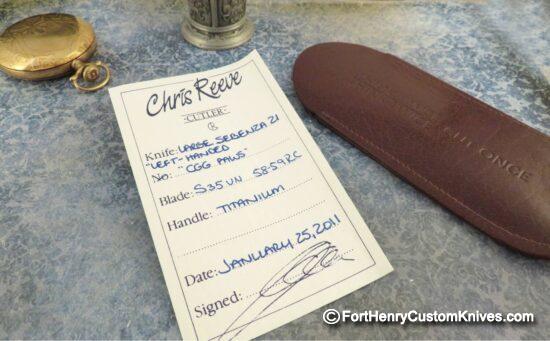 Chris Reeve
·CUTLER·
Knife: LARGE SEBENZA 21
"LEFT-HANDED
No: "CGG PAWS"
Blade: S35VN 58-59RC
Handle: TITANIUM
Date: JANUARY 25, 2011
Signed:
ONCE
©FortHenryCustomKnives.com